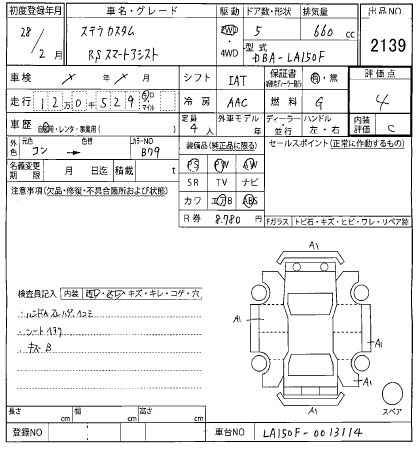 初度登録年月 車名・グレード 駆動 ドア数・形状 排気量 出品NO
28/2月 ステラカスタム 2WD・4WD 5 660 cc 2139
R,Sスマートアシスト 型式 DBA-LA150F
車検 / / シフト IAT 保証書 有・無 評価点
走行 12万0千529 キロ マイル 冷房 AAC 燃料 G 4
車歴 自家用・レンタ・事業用( ) 定員 4人 外車モデル 年 ディーラー・並行 ハンドル 左・右 内装評価 C
外色 元色 コン → 色替 カラーNO B79 装備品(純正品に限る) セールスポイント(正常に動作するもの)
名義変更期限 月 日迄 積載 t PS PW AW
注意事項(欠品・修復・不具合箇所および状態) SR TV ナビ
カワ エアB ABS
R券 8,780円 Fガラス トビ石・キズ・ヒビ・ワレ・リペア跡
A1
検査員記入 内装
A1
A1
シート
キズB
A1
スペア
A1
長さ cm 幅 cm 高さ cm
登録NO 車台NO LA150F-0013114